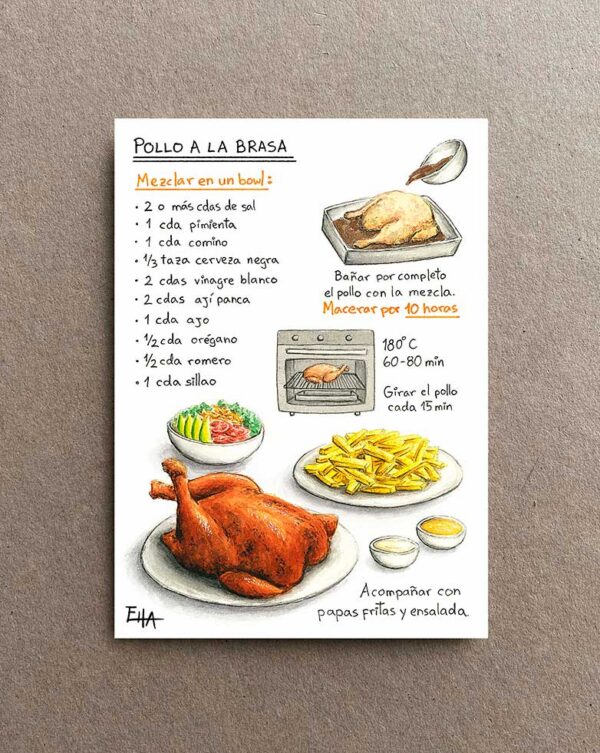 POLLO A LA BRASA
Mezclar en un bowl:
· 2 o más cdas de sal
· 1 cda pimienta
· 1 cda comino
· 1/3 taza cerveza negra
· 2 cdas vinagre blanco
· 2 cdas ají panca
· 1 cda ajo
· 1/2 cda orégano
· 1/2 cda romero
· 1 cda sillao
Bañar por completo
el pollo con la mezcla.
Macerar por 10 horas
180°C
60-80 min
Girar el pollo
cada 15 min
Acompañar con
papas fritas y ensalada.
EHA